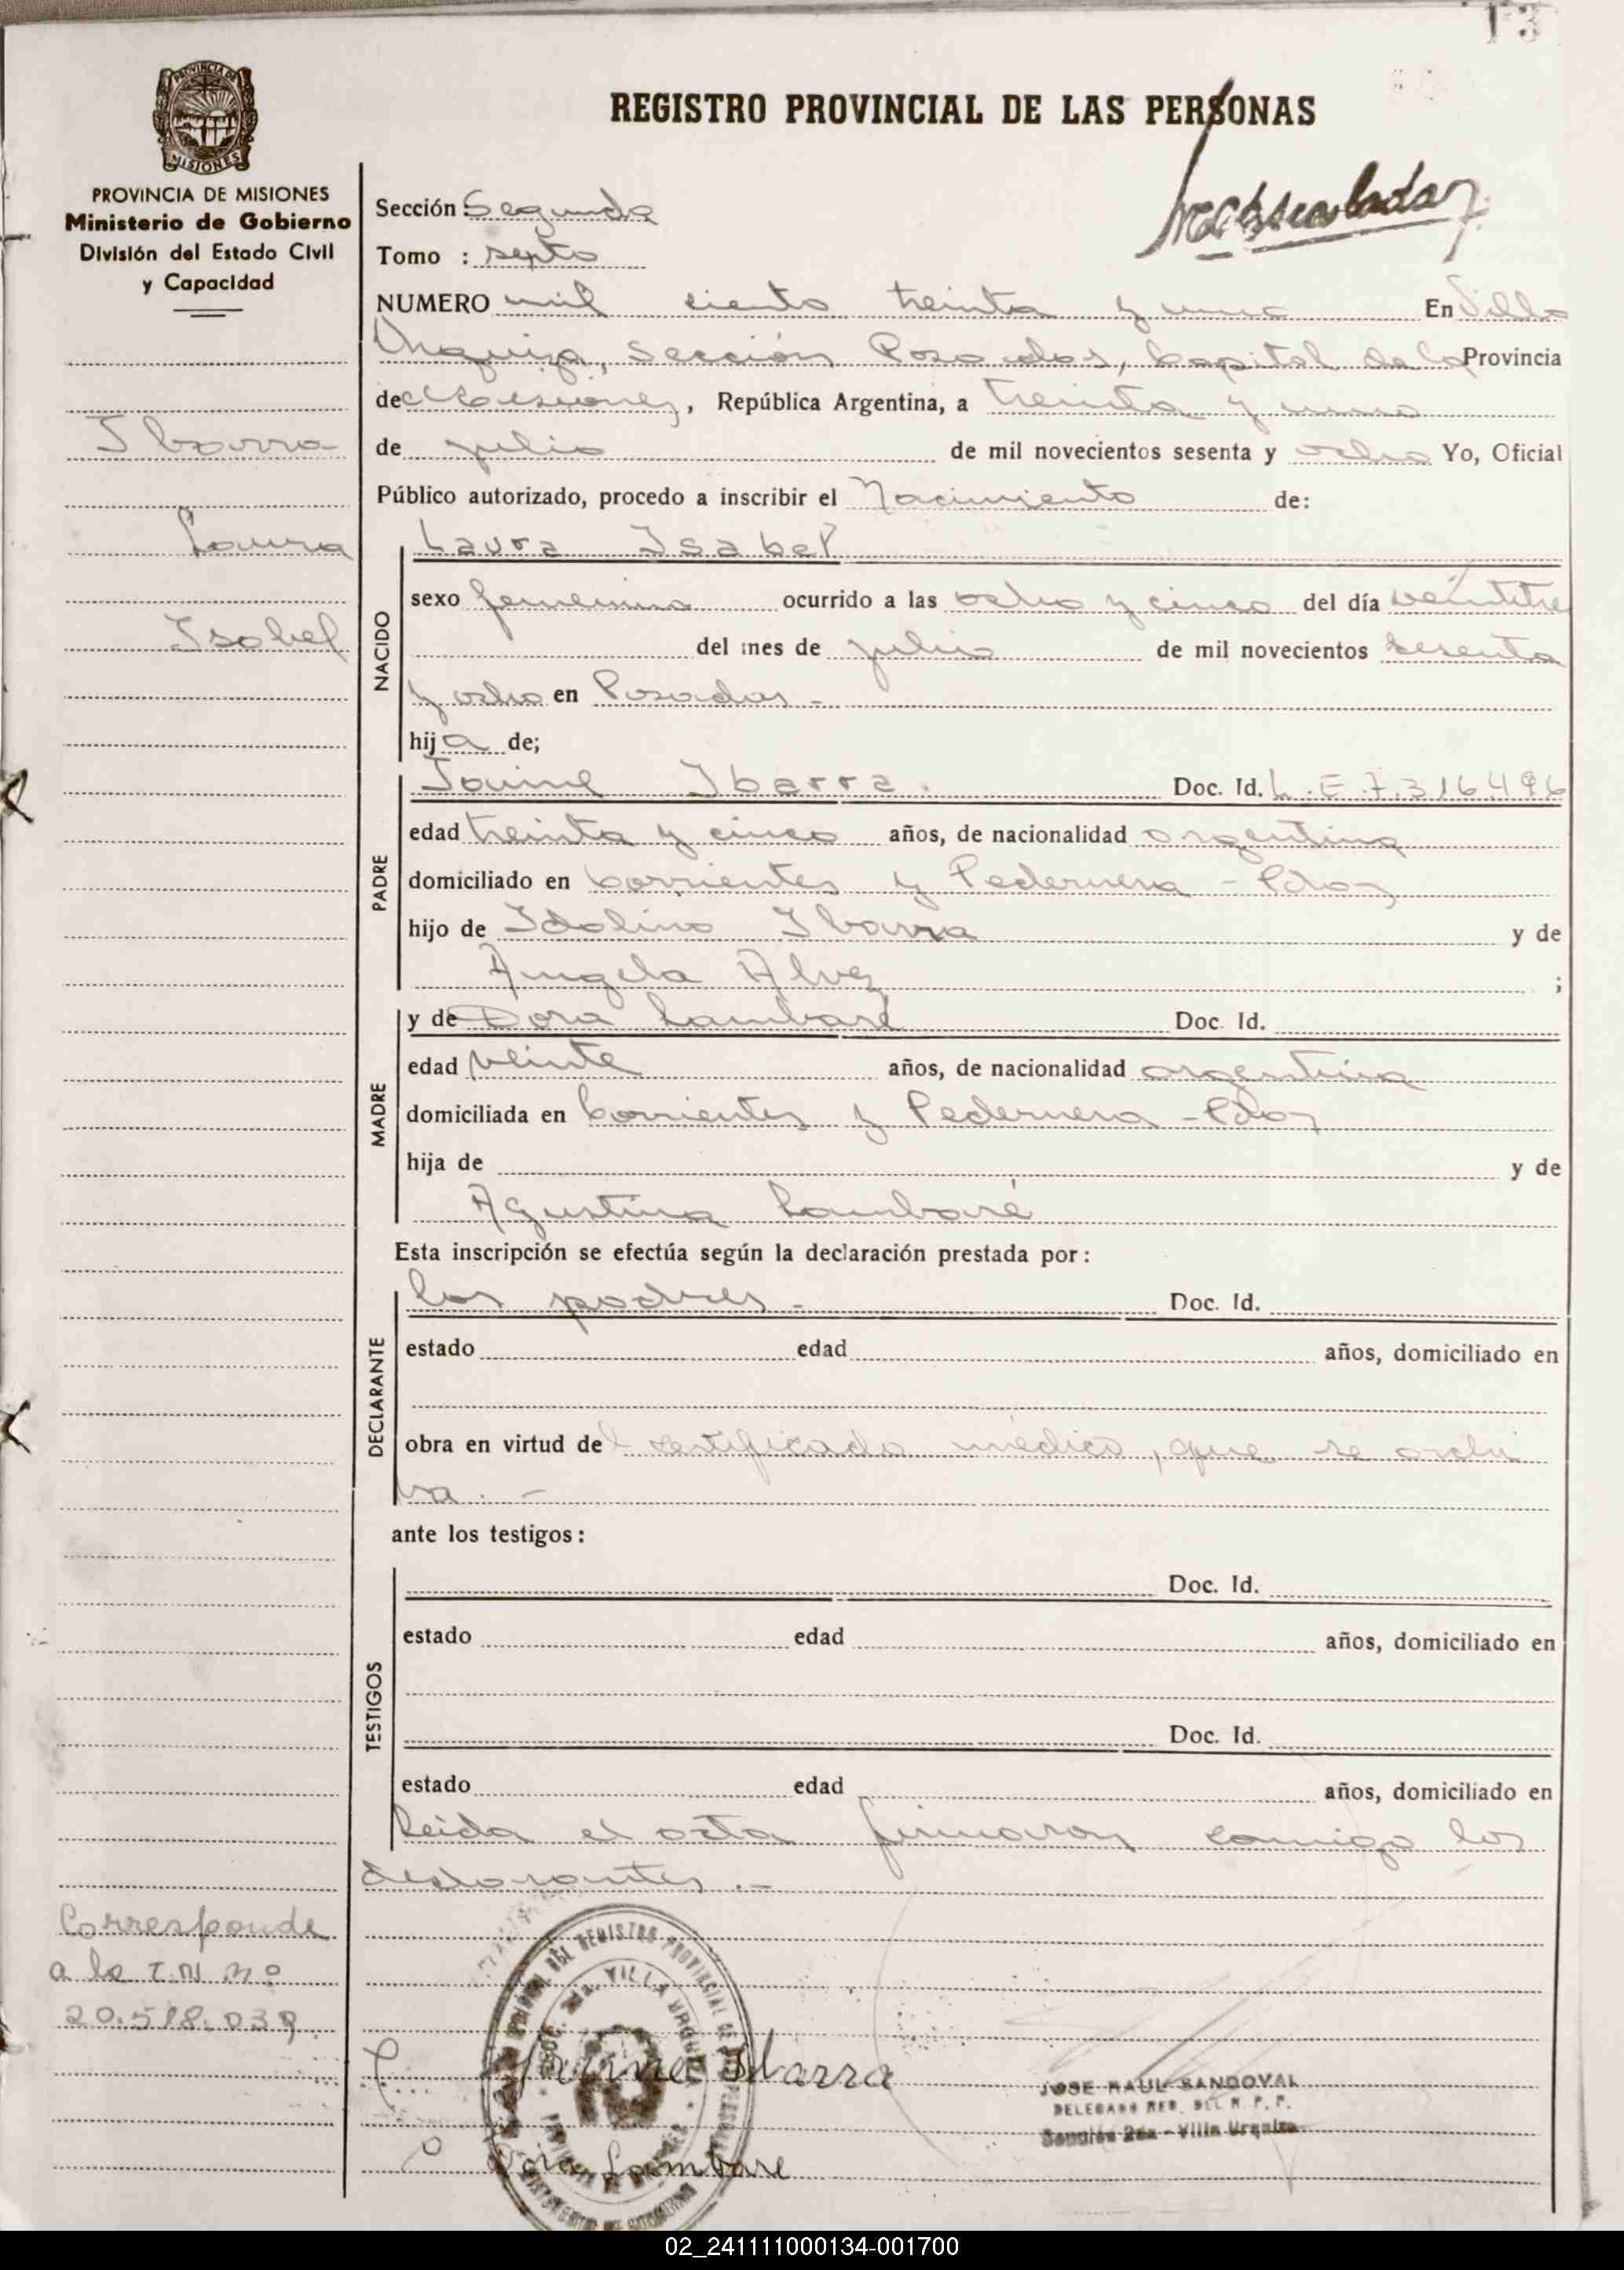 13
PROVINCIA DE
MISIONES
PROVINCIA DE MISIONES
Ministerio de Gobierno
División del Estado Civil
y Capacidad
REGISTRO PROVINCIAL DE LAS PERSONAS
Sección: Segunda
Tomo : septo
NUMERO mil ciento treinta y uno En Villa
Urquiza, sección Posadas, Capital de la Provincia
de Misiones, República Argentina, a treinta y uno
de julio de mil novecientos sesenta y ocho Yo, Oficial
Público autorizado, procedo a inscribir el Nacimiento de:
Ibarra
Laura
Isabel
NACIDO
Laura Isabel
sexo femenino ocurrido a las ocho y cinco del día veintitre
del mes de julio de mil novecientos sesenta
y ocho en Posadas -
hija de;
PADRE
Jaime Ibarra. Doc. Id. L.E.7.316.496
edad treinta y cinco años, de nacionalidad argentina
domiciliado en Corrientes y Pedernera - Pdas
hijo de Idolino Ibarra y de
Angela Alvez ;
MADRE
y de Dora Lambaré Doc. Id.
edad veinte años, de nacionalidad argentina
domiciliada en Corrientes y Pedernera - Pdas
hija de y de
Agustina Lambaré
Esta inscripción se efectúa según la declaración prestada por:
DECLARANTE
los padres - Doc. Id.
estado edad años, domiciliado en
obra en virtud del certificado médico, que se archi
va. -
ante los testigos:
TESTIGOS
Doc. Id.
estado edad años, domiciliado en
Doc. Id.
estado edad años, domiciliado en
Leida el acta firmaron conmigo los
declarantes.-
Corresponde
a la T.N nº
20.518.039
Jaime Ibarra
Dora Lambare
VILLA URQUIZA
2
JOSE RAUL SANDOVAL
Sección 2da - Villa Urquiza
02_241111000134-001700